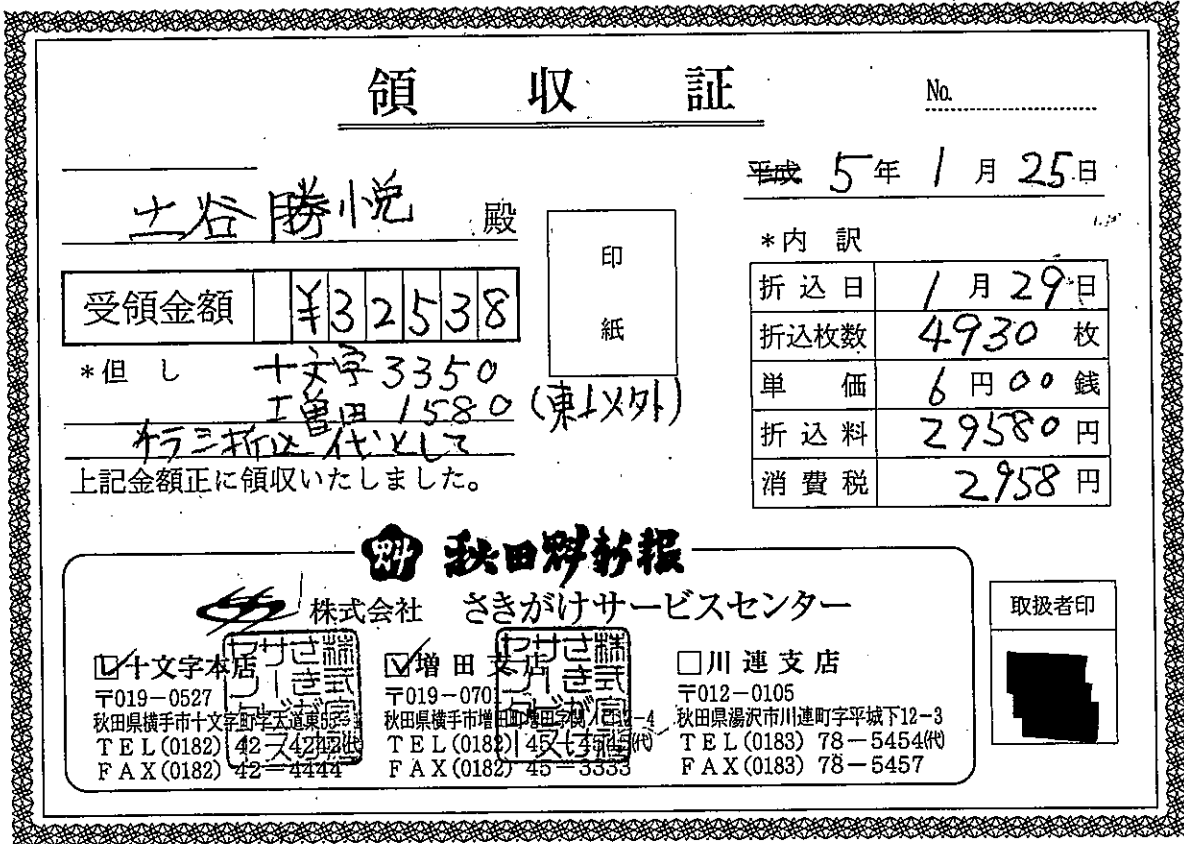 領収証
No.
平成 5年 1月 25日
土谷勝悦 殿
印紙
受領金額 ¥32538
*但し 十文字 3350
増田 1580 (東土以外)
チラシ折込代として
上記金額正に領収いたしました。
*内訳
折込日 1月29日
折込枚数 4930 枚
単価 6円00銭
折込料 29580円
消費税 2958円
魁 秋田魁新報
株式会社 さきがけサービスセンター
☑十文字本店
〒019-0527
秋田県横手市十文字町字大道東
TEL(0182) 42-4242(代)
FAX(0182) 42-4444
☑増田支店
〒019-070
秋田県横手市増田町増田字
TEL(0182) 45-4545(代)
FAX(0182) 45-3333
□川連支店
〒012-0105
秋田県湯沢市川連町字平城下12-3
TEL(0183) 78-5454(代)
FAX(0183) 78-5457
取扱者印